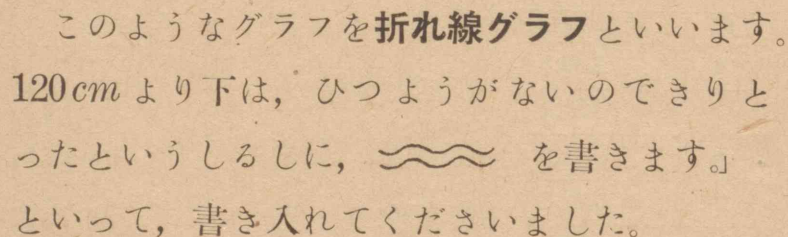 このようなグラフを折れ線グラフといいます。
120cmより下は，ひつようがないのできりと
ったというしるしに， を書きます。」
といって，書き入れてくださいました。